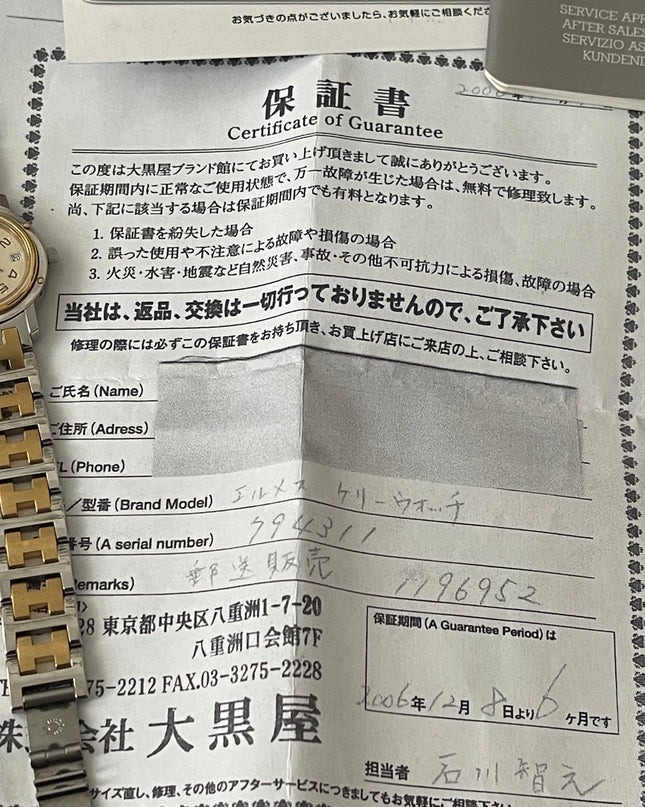 お気づきの点がございましたら、お気軽にご相談くださ
SERVICE APR
AFTER SALES
SERVIZIO AS
KUNDEND
保証書
Certificate of Guarantee
この度は大黒屋ブランド館にてお買い上げ頂きまして誠にありがとうございます。
保証期間内に正常なご使用状態で、万一故障が生じた場合は、無料で修理致します。
尚、下記に該当する場合は保証期間内でも有料となります。
1. 保証書を紛失した場合
2. 誤った使用や不注意による故障や損傷の場合
3. 火災・水害・地震など自然災害、事故・その他不可抗力による損傷、故障の場合
当社は、返品、交換は一切行っておりませんので、ご了承下さい
修理の際には必ずこの保証書をお持ち頂き、お買上げ店にご来店の上、ご相談下さい。
ご氏名 (Name)
ご住所 (Adress)
L (Phone)
／型番 (Brand Model) エルメス ケリーウォッチ
番号 (A serial number) 794311
Remarks) 郵送販売 7796952
28 東京都中央区八重洲1-7-20
八重洲口会館7F
75-2212 FAX.03-3275-2228
株 会社 大黒屋
保証期間 (A Guarantee Period) は
2006年12月8日より6ヶ月です
担当者 石川智え
サイズ直し、修理、その他のアフターサービスにつきましてもお気軽にご相談下さい